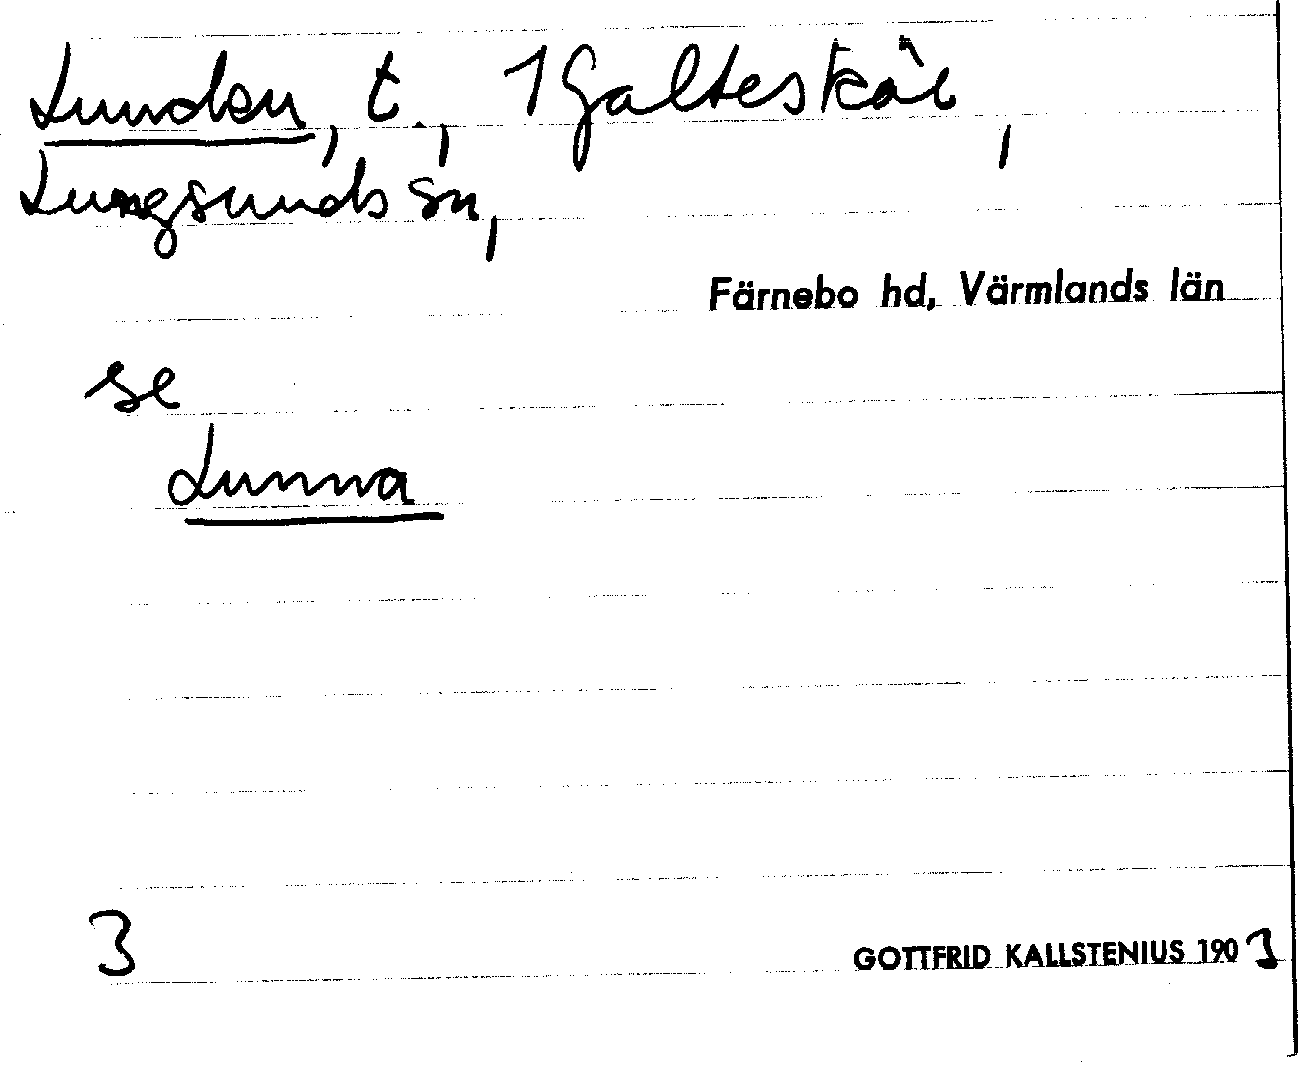 Lunden, t., 1 Galteskär,
Lungsunds sn,
Färnebo hd, Värmlands län
se
Lunna
3
GOTTFRID KALLSTENIUS 1903